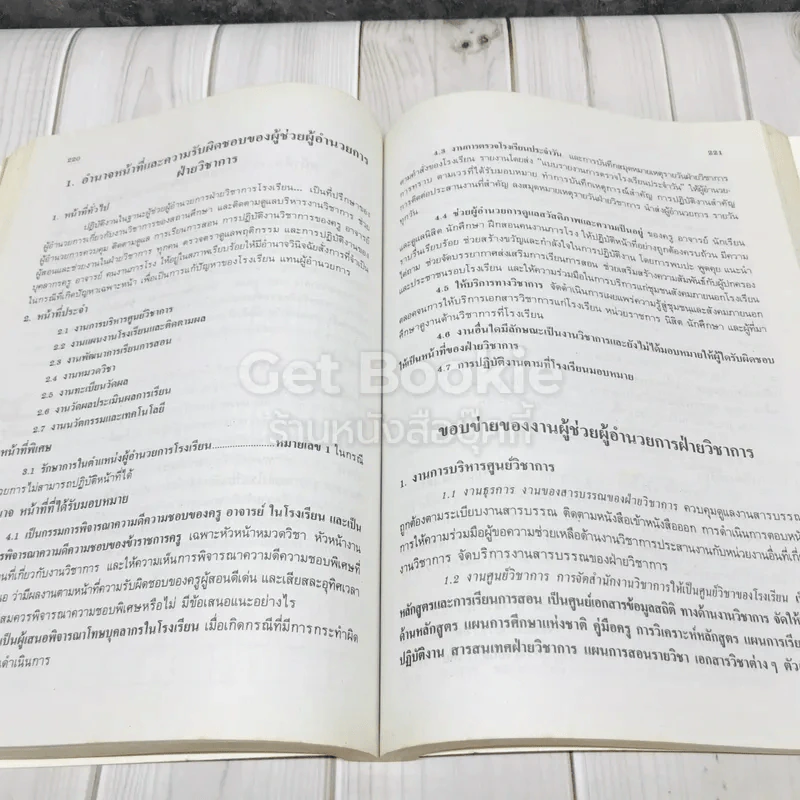 220
1. อำนาจหน้าที่และความรับผิดชอบของผู้ช่วยผู้อำนวยการ
ฝ่ายวิชาการ
1. หน้าที่ทั่วไป
ปฏิบัติงานในฐานะผู้ช่วยผู้อำนวยการฝ่ายวิชาการโรงเรียน... เป็นที่ปรึกษาของ
ผู้อำนวยการเกี่ยวกับงานวิชาการของสถานศึกษา และติดตามดูแลบริหารงานวิชาการ ช่วย
ผู้อำนวยการควบคุม ติดตามดูแล การเรียนการสอน การปฏิบัติงานวิชาการของครู อาจารย์
ผู้สอนและช่วยงานในฝ่ายวิชาการ ทุกคน ตรวจตราดูแลพฤติกรรม และการปฏิบัติงานของ
บุคลากรครู อาจารย์ คนงานภารโรง ให้อยู่ในสภาพเรียบร้อยให้มีอำนาจวินิจฉัยสั่งการที่จำเป็น
ในกรณีที่เกิดปัญหาเฉพาะหน้า เพื่อเป็นการแก้ปัญหาของโรงเรียน แทนผู้อำนวยการ
2. หน้าที่ประจำ
2.1 งานการบริหารศูนย์วิชาการ
2.2 งานแผนงานโรงเรียนและติดตามผล
2.3 งานพัฒนาการเรียนการสอน
2.4 งานหมวดวิชา
2.5 งานทะเบียนวัดผล
2.6 งานวัดผลประเมินผลการเรียน
2.7 งานนวัตกรรมและเทคโนโลยี
หน้าที่พิเศษ
3.1 รักษาการในตำแหน่งผู้อำนวยการโรงเรียน......................หมายเลข 1 ในกรณี
วยการไม่สามารถปฏิบัติหน้าที่ได้
าจ หน้าที่ที่ได้รับมอบหมาย
4.1 เป็นกรรมการพิจารณาความดีความชอบของครู อาจารย์ ในโรงเรียน และเป็น
รพิจารณาความดีความชอบของข้าราชการครู เฉพาะหัวหน้าหมวดวิชา หัวหน้างาน
นที่เกี่ยวกับงานวิชาการ และให้ความเห็นการพิจารณาความดีความชอบพิเศษที่
นอ ว่ามีผลงานตามหน้าที่ความรับผิดชอบของครูผู้สอนดีเด่น และเสียสละอุทิศเวลา
สมควรพิจารณาความชอบพิเศษหรือไม่ มีข้อเสนอแนะอย่างไร
เป็นผู้เสนอพิจารณาโทษบุคลากรในโรงเรียน เมื่อเกิดกรณีที่มีการกระทำผิด
ดำเนินการ
221
4.3 งานการตรวจโรงเรียนประจำวัน และการบันทึกสมุดหมายเหตุรายวันฝ่ายวิชาการ
ตามคำสั่งของโรงเรียน รายงานโดยส่ง "แบบรายงานการตรวจโรงเรียนประจำวัน" ให้ผู้อำนวย-
การทราบ ตามเวรที่ได้รับมอบหมาย ทำการบันทึกเหตุการณ์สำคัญ การปฏิบัติงานสำคัญ
การติดต่อประสานงานที่สำคัญ ลงสมุดหมายเหตุรายวันฝ่ายวิชาการ นำส่งผู้อำนวยการ รายวัน
ทุกวัน
4.4 ช่วยผู้อำนวยการดูแลสวัสดิภาพและความเป็นอยู่ ของครู อาจารย์ นักเรียน
และดูแลนิสิต นักศึกษา ฝึกสอนคนงานภารโรง ให้ปฏิบัติหน้าที่อย่างถูกต้องครบถ้วน มีความ
ราบรื่นเรียบร้อย ช่วยสร้างขวัญและกำลังใจในการปฏิบัติงาน โดยการพบปะ พูดคุย แนะนำ
ไต่ถาม ช่วยจัดบรรยากาศส่งเสริมการเรียนการสอน ช่วยเสริมสร้างความสัมพันธ์กับผู้ปกครอง
และประชาชนรอบโรงเรียน และให้ความร่วมมือในการบริการแก่ชุมชนสังคมภายนอกโรงเรียน
4.5 ให้บริการทางวิชาการ จัดดำเนินการเผยแพร่ความรู้สู่ชุมชนและสังคมภายนอก
ตลอดจนการให้บริการเอกสารวิชาการแก่โรงเรียน หน่วยราชการ นิสิต นักศึกษา และผู้ที่มา
ศึกษาดูงานด้านวิชาการที่โรงเรียน
4.6 งานอื่นใดมีลักษณะเป็นงานวิชาการและยังไม่ได้มอบหมายให้ผู้ใดรับผิดชอบ
ให้เป็นหน้าที่ของฝ่ายวิชาการ
4.7 การปฏิบัติงานตามที่โรงเรียนมอบหมาย
ขอบข่ายของงานผู้ช่วยผู้อำนวยการฝ่ายวิชาการ
1. งานการบริหารศูนย์วิชาการ
1.1 งานธุรการ งานของสารบรรณของฝ่ายวิชาการ ควบคุมดูแลงานสารบรรณ
ถูกต้องตามระเบียบงานสารบรรณ ติดตามหนังสือเข้าหนังสือออก การดำเนินการตอบหนัง
การให้ความร่วมมือผู้ขอความช่วยเหลือด้านงานวิชาการประสานงานกับหน่วยงานอื่นที่เกี่
งานวิชาการ จัดบริการงานสารบรรณของฝ่ายวิชาการ
1.2 งานศูนย์วิชาการ การจัดสำนักงานวิชาการให้เป็นศูนย์วิชาของโรงเรียน เ
หลักสูตรและการเรียนการสอน เป็นศูนย์เอกสารข้อมูลสถิติ ทางด้านงานวิชาการ จัดให้
ด้านหลักสูตร แผนการศึกษาแห่งชาติ คู่มือครู การวิเคราะห์หลักสูตร แผนการเรีย
ปฏิบัติงาน สารสนเทศฝ่ายวิชาการ แผนการสอนรายวิชา เอกสารวิชาต่าง ๆ ตัว
Get Bookie
ร้านหนังสือบุ๊คกี้